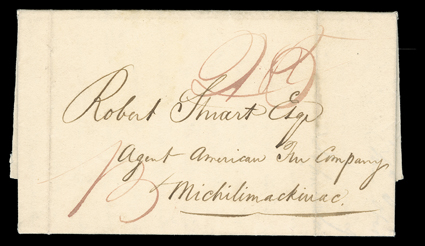 25
Robert Stuart Esqr
Agent American Fur Company
Michilimackinac.